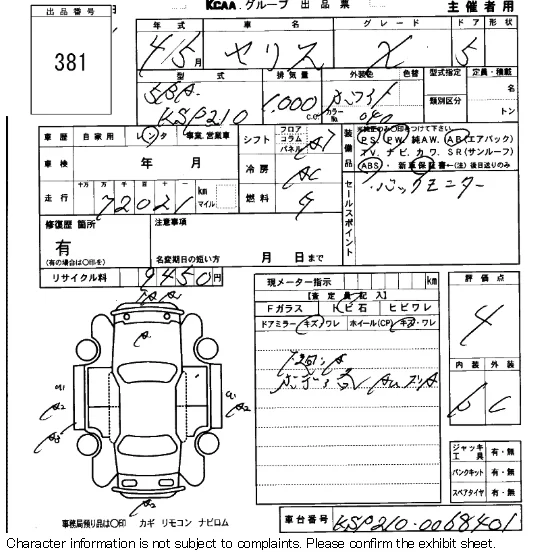 出品番号
KCAA.グループ 出品票
主催者用
381
年式 車名 グレード ドア 形状
4/5月 ヤリス X 5
型式 排気量 外装色 色替 型式指定 定員・積載
5BA-
KSP210 1,000 c.c. ホワイト カラーNo. 040 類別区分 名 トン
車歴 自家用 レンタ 事業、営業車
シフト フロア コラム パネル AT
装備品
※純正のみ○印をつけて下さい。
PS PW 純AW. AB(エアバック)
TV. ナビ. カワ. SR(サンルーフ)
ABS・新車保証書←(注)後日送りのみ
車検 年 月
冷房 AC
走行 十万 万 千 百 十 一
72021 km マイル
燃料 G
セールスポイント
・バックモニター
修復歴 箇所
有
(有の場合は○印を)
注意事項
名変期日の短い方 月 日まで
リサイクル料 9450円
現メーター指示 km
【査定員記入】
Fガラス トビ石 ヒビワレ
ドアミラー キズ/ワレ ホイール(CP) キズ・ワレ
評価点
4
内装 外装
b C
A
A2
ジャッキ工具 有・無
パンクキット 有・無
スペアタイヤ 有・無
事務局預り品は○印 カギ リモコン ナビロム
車台番号 KSP210-0068401
Character information is not subject to complaints. Please confirm the exhibit sheet.